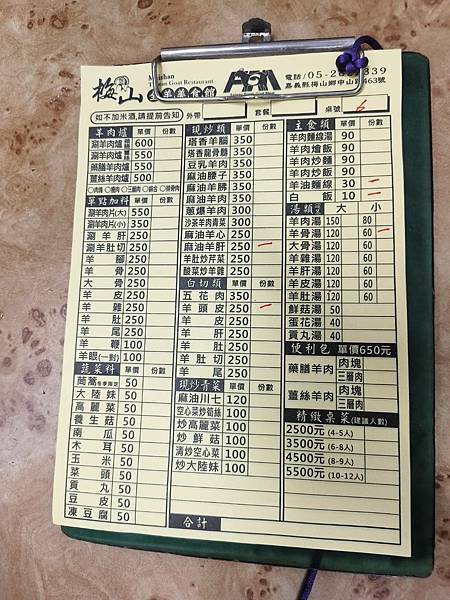 梅山
Meishan
Goat Restaurant
電話/05-2
339
嘉義縣梅山鄉中山路463號
如不加米酒,請提前告知
外帶
套餐
桌號
羊肉爐 單價 份數
涮羊肉爐 600
涮羊肉爐 550
藥膳羊肉爐 550
薑絲羊肉爐 500
單點加料 單價 份數
涮羊肉片(大) 550
涮羊肉片(小) 350
涮羊肝 250
涮羊肚切 250
羊腳 250
羊骨 250
大骨 250
羊皮 250
羊雜 250
羊肚 250
羊尾 250
羊鞭 100
羊眼(一對) 100
蔬菜料 單價 份數
茼蒿 50
大陸妹 50
高麗菜 50
養生菇 50
南瓜 50
木耳 50
玉米 50
菜頭 50
貢丸 50
豆皮 50
凍豆腐 50
現炒類 單價 份數
塔香羊腦 350
塔香龍骨髓 350
豆乳羊肉 350
麻油腰子 350
麻油羊肺 350
麻油羊肉 350
蔥爆羊肉 300
沙茶羊肉青菜 250
麻油羊心 250
麻油羊肝 250 一
羊肚炒芹菜 250
酸菜炒羊雜 250
白切類 單價 份數
五花肉 350
羊頭皮 250 一
羊皮 250
羊肝 250
羊肚 250
羊肚切 250
羊尾 250
現炒青菜 單價 份數
麻油川七 120
空心菜炒筍絲 100
炒高麗菜 100
炒鮮菇 100
清炒空心菜 100
炒大陸妹 100
合計
主食類 單價 份數
羊肉麵線湯 90
羊肉燴飯 90
羊肉炒麵 90
羊肉炒飯 90
羊油麵線 30 二
白飯 10 二
湯類 大 小
羊肉湯 150 80
羊骨湯 120 60 一
大骨湯 120 60
羊雜湯 120 60
羊肝湯 120 60
羊皮湯 120 60
羊肚湯 120 60
鮮菇湯 50
蛋花湯 40
貢丸湯 40
便利包 單價650元
藥膳羊肉 肉塊
三層肉
薑絲羊肉 肉塊
三層肉
精緻桌菜(建議人數)
2500元 (4-5人)
3500元 (6-8人)
4500元 (8-9人)
5500元 (10-12人)